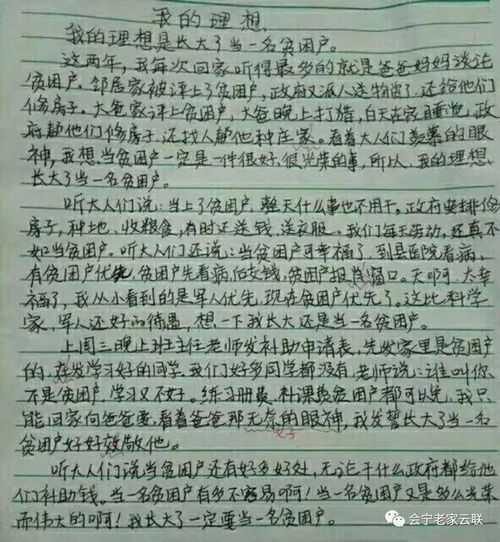 我的理想
我的理想是长大了当一名贫困户。
这两年,我每次回家听得最多的就是爸爸妈妈谈论
贫困户。邻居家被评上了贫困户,政府又派人送物资了,还给他们
修房子。大爸家评上贫困户,大爸晚上打牌,白天在家睡觉,政
府帮他们修房子,还找人帮他种庄家。看着大人们羡慕的眼
神,我想当贫困户一定是一件很好、很光荣的事,所以,我的理想
长大了当一名贫困户。
听大人们说:当上了贫困户,整天什么事也不用干。政府安排修
房子,种地、收粮食,有时还送钱、送衣服。我们每天劳动,还真不
如当贫困户。听大人们还说:当贫困户可幸福了,到县医院看病,
有贫困户优先,贫困户先看病,后交钱,贫困户报销窗口。天啊,太幸
福了,我从小看到的是军人优先,现在贫困户优先了。这比科学
家,军人还好的待遇,想一下我长大还是当一名贫困户。
上周三晚上班主任老师发补助申请表,先发家里是贫困户
的,在发学习好的同学,我们好多同学都没有,老师说:谁叫你
不是贫困户,学习又不好。练习册费,补课费贫困户都可以免,我只
能回家向爸爸要,看着爸爸那无奈的眼神,我发誓长大了当一名
贫困户好好效敬他。
听大人们说当贫困户还有好多好处,无论干什么政府都给他
们补助钱。当一名贫困户有多不容易啊!当一名贫困户又是多么光荣
而伟大的啊!我长大了一定要当一名贫困户。
会宁老家云联